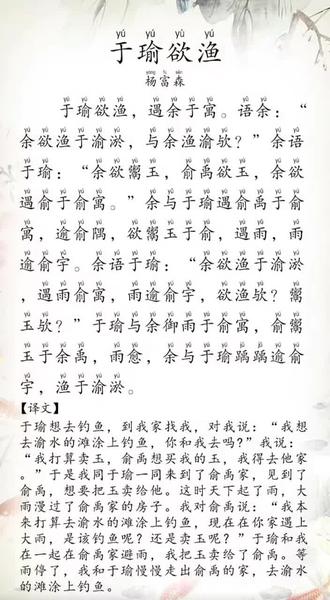 yú yú yù yú
于瑜欲渔
杨富森
于瑜欲渔，遇余于寓。语余：“
余欲渔于渝淤，与余渔渝欤？”余语
于瑜：“余欲鬻玉，俞禹欲玉，余欲
遇俞于俞寓。”余与于瑜遇俞禹于俞
寓，逾俞隅，欲鬻玉于俞，遇雨，雨
逾俞宇。余语于瑜：“余欲渔于渝淤
，遇雨俞寓，雨逾俞宇，欲渔欤？鬻
玉欤？”于瑜与余御雨于俞寓，俞鬻
玉于余禹，雨愈，余与于瑜踽踽逾俞
宇，渔于渝淤。
【译文】
于瑜想去钓鱼，到我家找我，对我说：“我想
去渝水的滩涂上钓鱼，你和我去吗？”我说：
“我打算卖玉，俞禹想买我的玉，我得去他家
。”于是我同于瑜一同来到了俞禹家，见到了
俞禹，想要把玉卖给他。这时天下起了雨，大
雨漫过了俞禹家的房子。我对俞禹说：“我本
来打算去渝水的滩涂上钓鱼，现在在你家遇上
大雨，是该钓鱼呢？还是卖玉呢？”于瑜和我
在一起在俞禹家避雨，我把玉卖给了俞禹。等
雨停了，我和于瑜慢慢走出俞禹的家，去渝水
的滩涂上钓鱼。